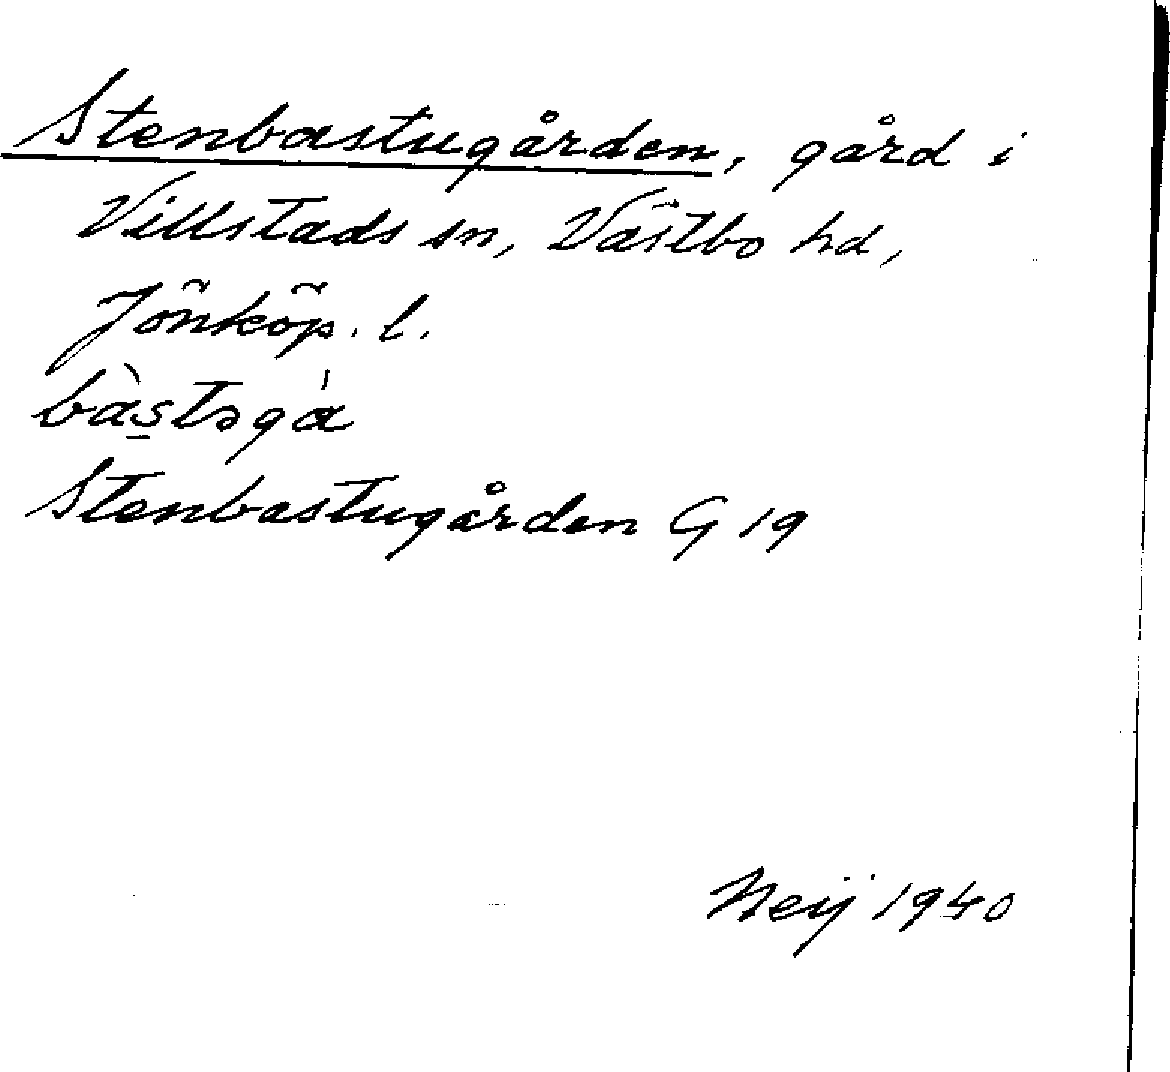 Stenbastugården, gård i
Villstads sn, Västbo hd,
Jönköp. l.
bàs̠tɔgá
Stenbastugården G 19
Neij 1940